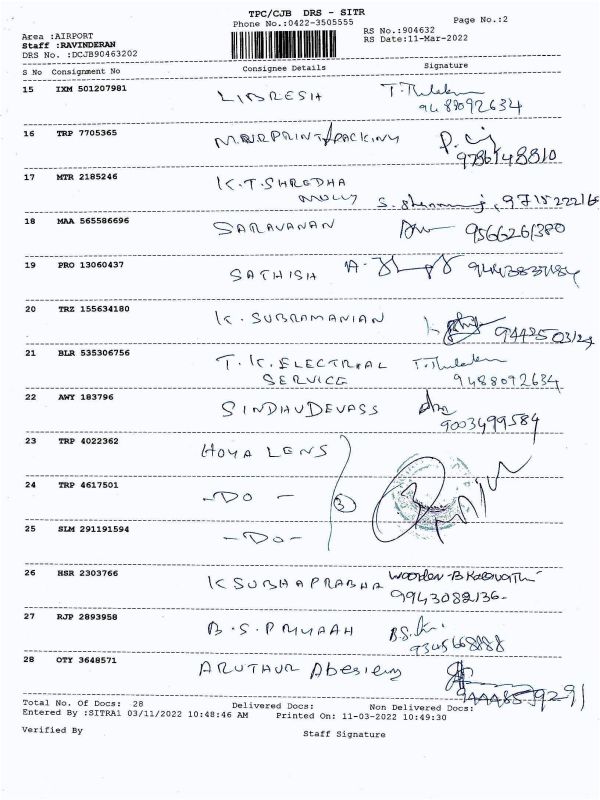 TPC/CJB DRS - SITR
Phone No.:0422-3505555
Page No.:2
Area :AIRPORT
RS No.:904632
Staff :RAVINDERAN
RS Date:11-Mar-2022
DRS No. :DCJB90463202
S No Consignment No Consignee Details Signature
15 IXM 501207981 LIBRESH
9488092634
16 TRP 7705365 PACKING
9786148810
17 MTR 2185246 K.T. SHREDHA
MOLLY
18 MAA 565586696 SARAVANAN 9566261380
19 PRO 13060437 SATHISH
20 TRZ 155634180 K. SUBRAMANIAN
21 BLR 535306756 T.K. ELECTRIAL
SERVICE 9488092634
22 AWY 183796 SINDHUDEVASS
9003499584
23 TRP 4022362 HOYA LENS
24 TRP 4617501 -DO-
3
25 SLM 291191594 -DO-
26 HSR 2303766 K SUBHAPRABHA
9943082136-
27 RJP 2893958 B.S.P
9345668888
28 OTY 3648571
Total No. Of Docs: 28 Delivered Docs: Non Delivered Docs:
Entered By :SITRA1 03/11/2022 10:48:46 AM Printed On: 11-03-2022 10:49:30
Verified By Staff Signature